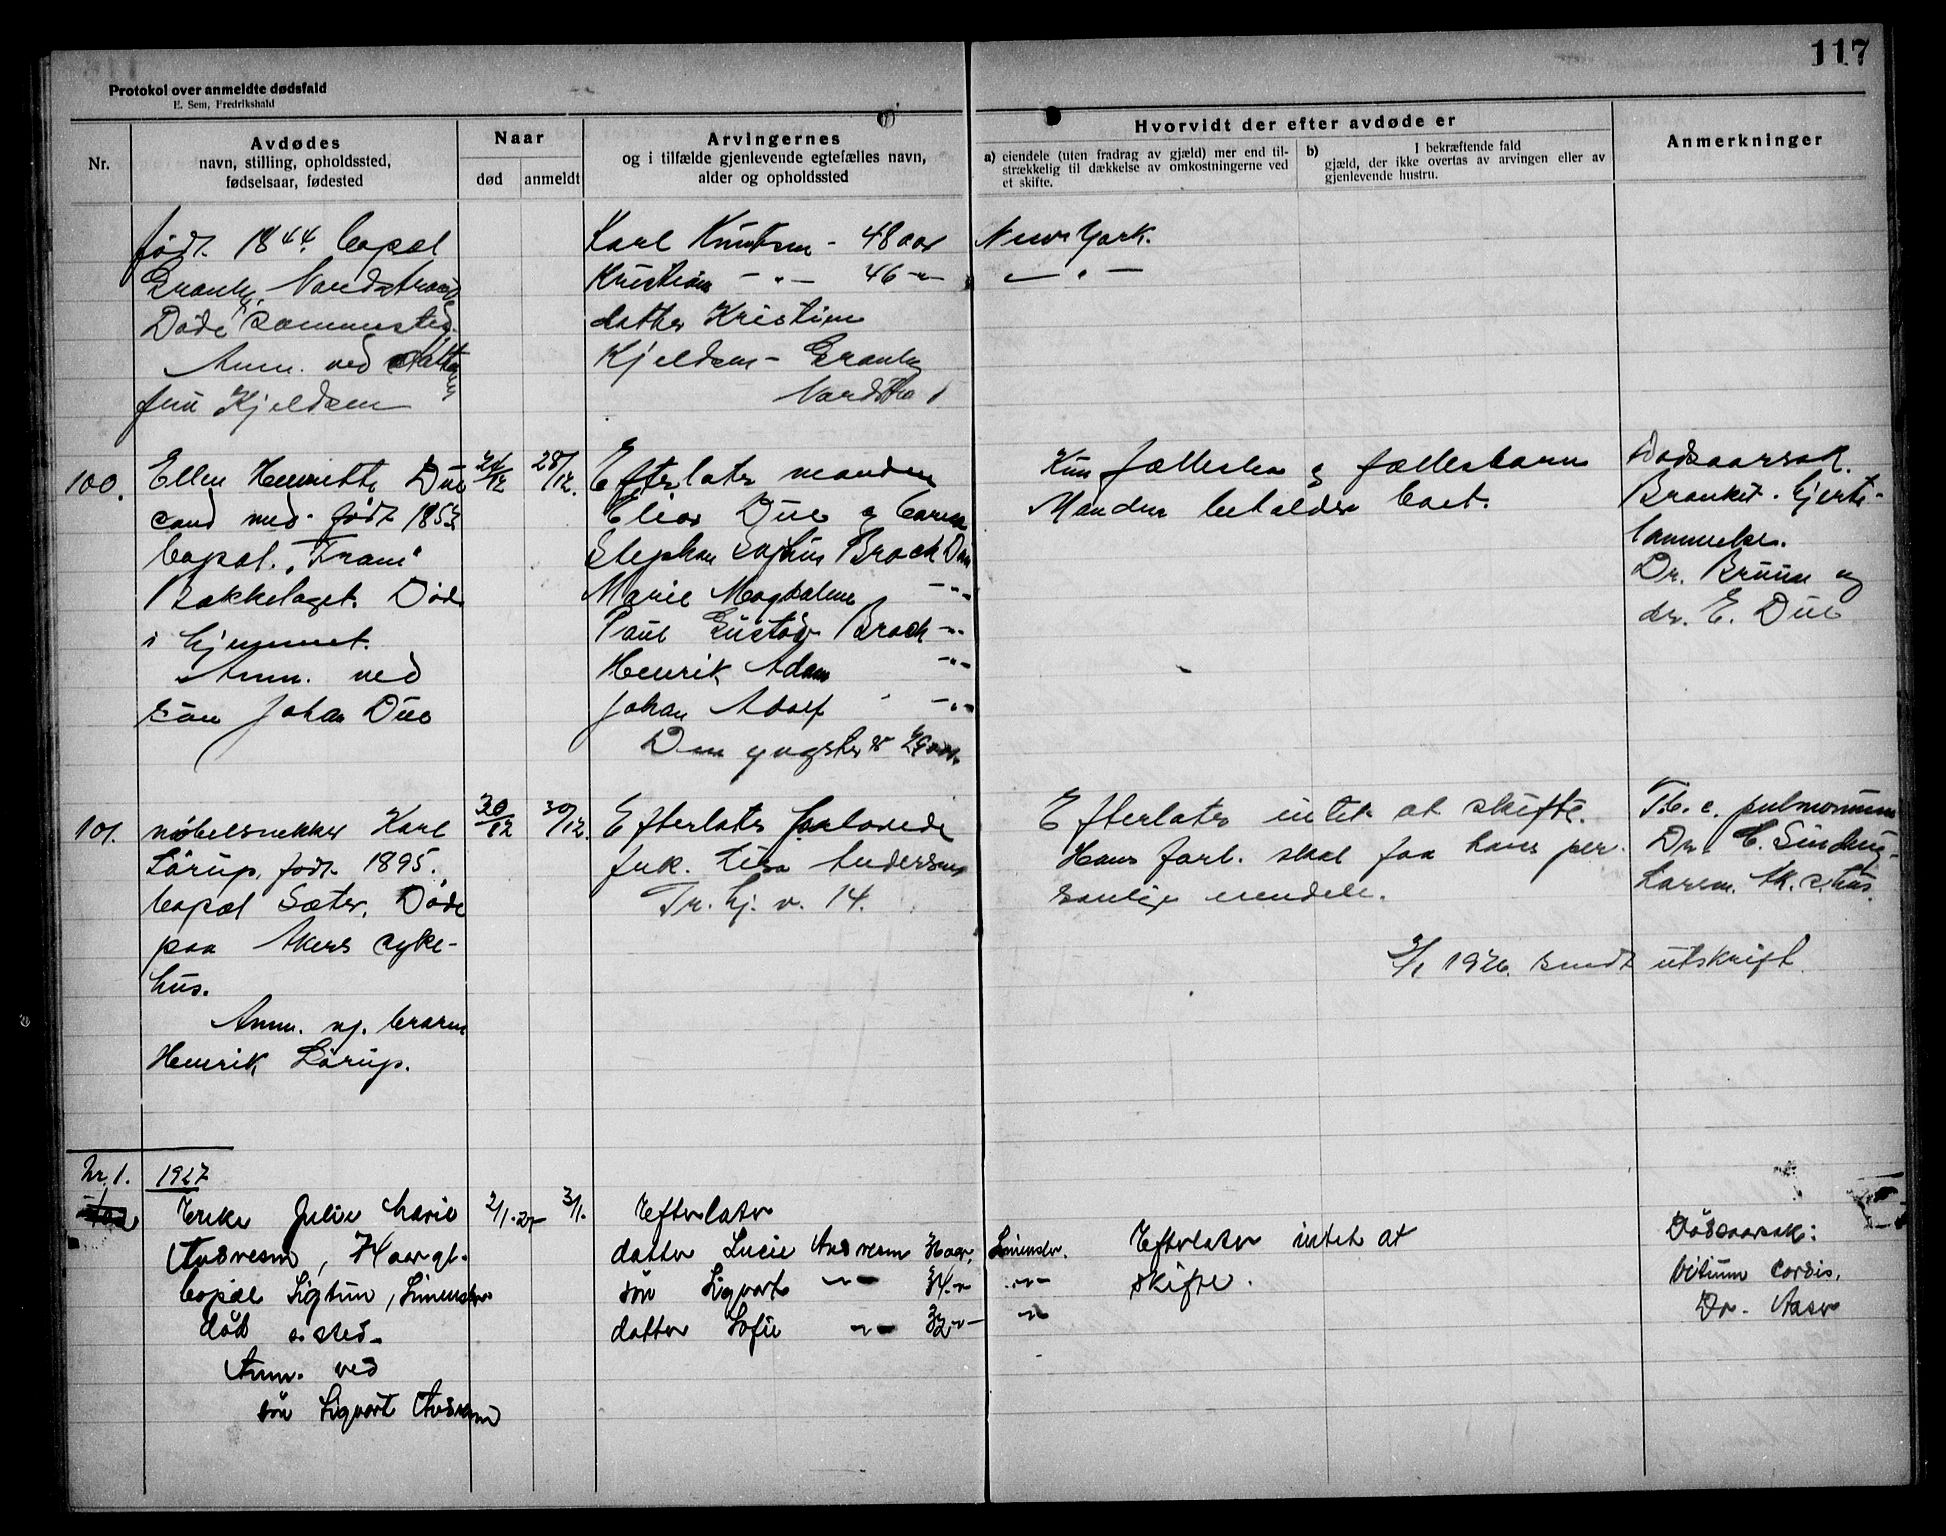 117
Protokol over anmeldte dødsfald
E. Sem, Fredrikshald
Nr.
Avdødes
navn, stilling, opholdssted,
fødselsaar, fødested
Naar
død
anmeldt
Arvingernes
og i tilfælde gjenlevende egtefælles navn,
alder og opholdssted
Hvorvidt der efter avdøde er
a) eiendele (uten fradrag av gjæld) mer end til-
strækkelig til dækkelse av omkostningerne ved
et skifte.
b) I bekræftende fald
gjæld, der ikke overtas av arvingen eller av
gjenlevende hustru.
Anmerkninger
født 1844. bopæl
Granly, Nordstrand
Døde sammested.
Anm. ved datter
fru Kjeldsen
Karl Knutsen - 48 aar New York.
Kristian - " - 46 - " - - " -
datter Kristine
Kjeldsen - Granly
Nordstrand
100.
Ellen Henriette Due
cand med. født 1853
bopæl. "Fram"
Bækkelaget. Død
i hjemmet.
Anm. ved
søn Johan Due
24/12
28/12.
Efterlater manden
Elias Due og barn
Stephan Sophus Brock Due
Marie Magdalene -"-
Paul Gustav Brock -"-
Henrik Adam -"-
Johan Adolf -"-
Den yngste er 29 aar.
Kun fællesbo og fællesbarn
Manden beholder boet.
Dødsaarsak.
Bronkit. hjerte-
lammelse.
Dr. Bruun og
dr. E. Due
101.
møbelsnekker Karl
Lørup, født 1895.
bopæl Sæter, Døde
paa Akers syke-
hus.
Anm. av broren
Henrik Lørup.
30/12
30/12.
Efterlater forlovede
frk. Lisa Andersen
Tr. hj. v. 14.
Efterlater intet at skifte.
Hans forl. skal faa hans per-
sonlige eiendele.
Tb. c. pulmonum
Dr. C. Sinding-
Larsen. Ak. s. hus.
3/1 1926. sendt utskrift.
Nr. 1.
1927
Enke Julie Marie
Andresen, 74 aar gl.
bopæl Sigtun, Simensbr.
død s. sted.
Anm. ved
søn Sigvart Andresen
2/1.27
3/1.
Efterlater
datter Lucie Andresen aar, Simensbr.
søn Sigvart -"- 34 -"- -"-
datter Sofie -"- 32 -"- -"-
Efterlater intet at
skifte.
Dødsaarsak:
vitium cordis.
Dr. Aaser